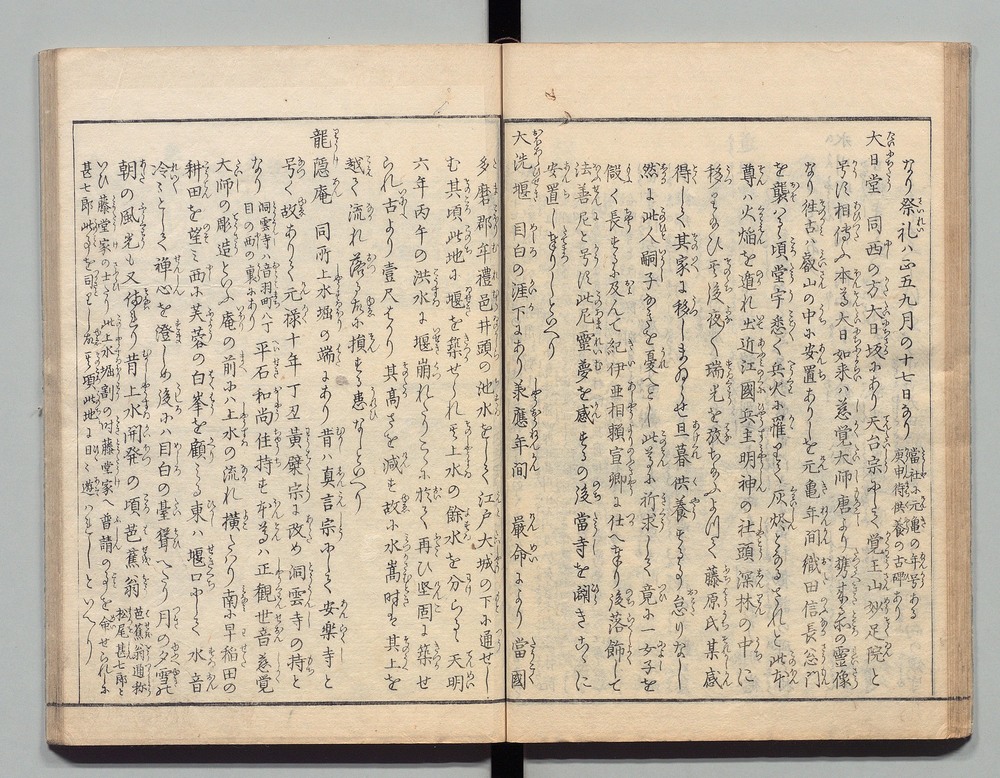 なり祭礼ハ正五九月の十七日なり 當社に元亀の年号ある
庚申待供養の古碑あり
大日堂 同西の方大日坂にあり天台宗にして覚王山妙足院と
号に相傳ふ本尊大日如来ハ慈覚大師唐より携来の霊像
なり往古ハ叡山の中に安置ありしを元亀年間織田信長公山門
を襲ハるゝ頃堂宇悉く兵火に罹りて灰燼となるされと此本
尊ハ火焔を遁れ出近江國兵主明神の社頭深林の中に
移らせたまひ其後夜々瑞光を放ちたまふよつて藤原氏某感
得して其家に移しまゐらせ旦暮供養するに怠りなし
然に此人嗣子なきを憂へとし此尊に祈求して竟に一女子を
儲く長するに及んて紀伊亜相頼宣卿に仕へ奉り後落飾して
法善尼と号に此尼霊夢を感するの後當寺を闢きこゝに
安置し奉りしといへり
大洗堰 目白の涯下にあり承應年間 嚴命により當國
多磨郡牟禮邑井頭の池水をして江戸大城の下に通せし
む其頃此地に堰を築せられ其上水の餘水を分らる天明
六年丙午の洪水に堰崩れたりこゝに於て再ひ堅固に築せ
られ古より壹尺はかり其高さを減す故に水嵩時ハ其上を
越て流れ落る故に損する患なしといへり
龍隠庵 同所上水堀の端にあり昔ハ真言宗にして安樂寺と
号く故ありて元禄十年丁丑黄檗宗に改め洞雲寺の持と
なり 洞雲寺ハ音羽町八丁
目の西の裏にあり 平石和尚住持す本尊ハ正観世音慈覚
大師の彫造といふ庵の前にハ上水の流れ横たハり南に早稲田の
耕田を望ミ西に芙蓉の白峯を顧ミる東ハ堰口にして水音
冷々として禅心を澄しめ後にハ目白の臺聳へたり月の夕雪の
朝の風光も又佳なり昔上水開発の頃芭蕉翁 芭蕉翁通称
松尾甚七郎と
いひ藤堂家の士たり此上水堀割の時藤堂家へ普請の事を命せられに
甚七郎此事を司とし故其頃此地に日々遊ハれしといへり